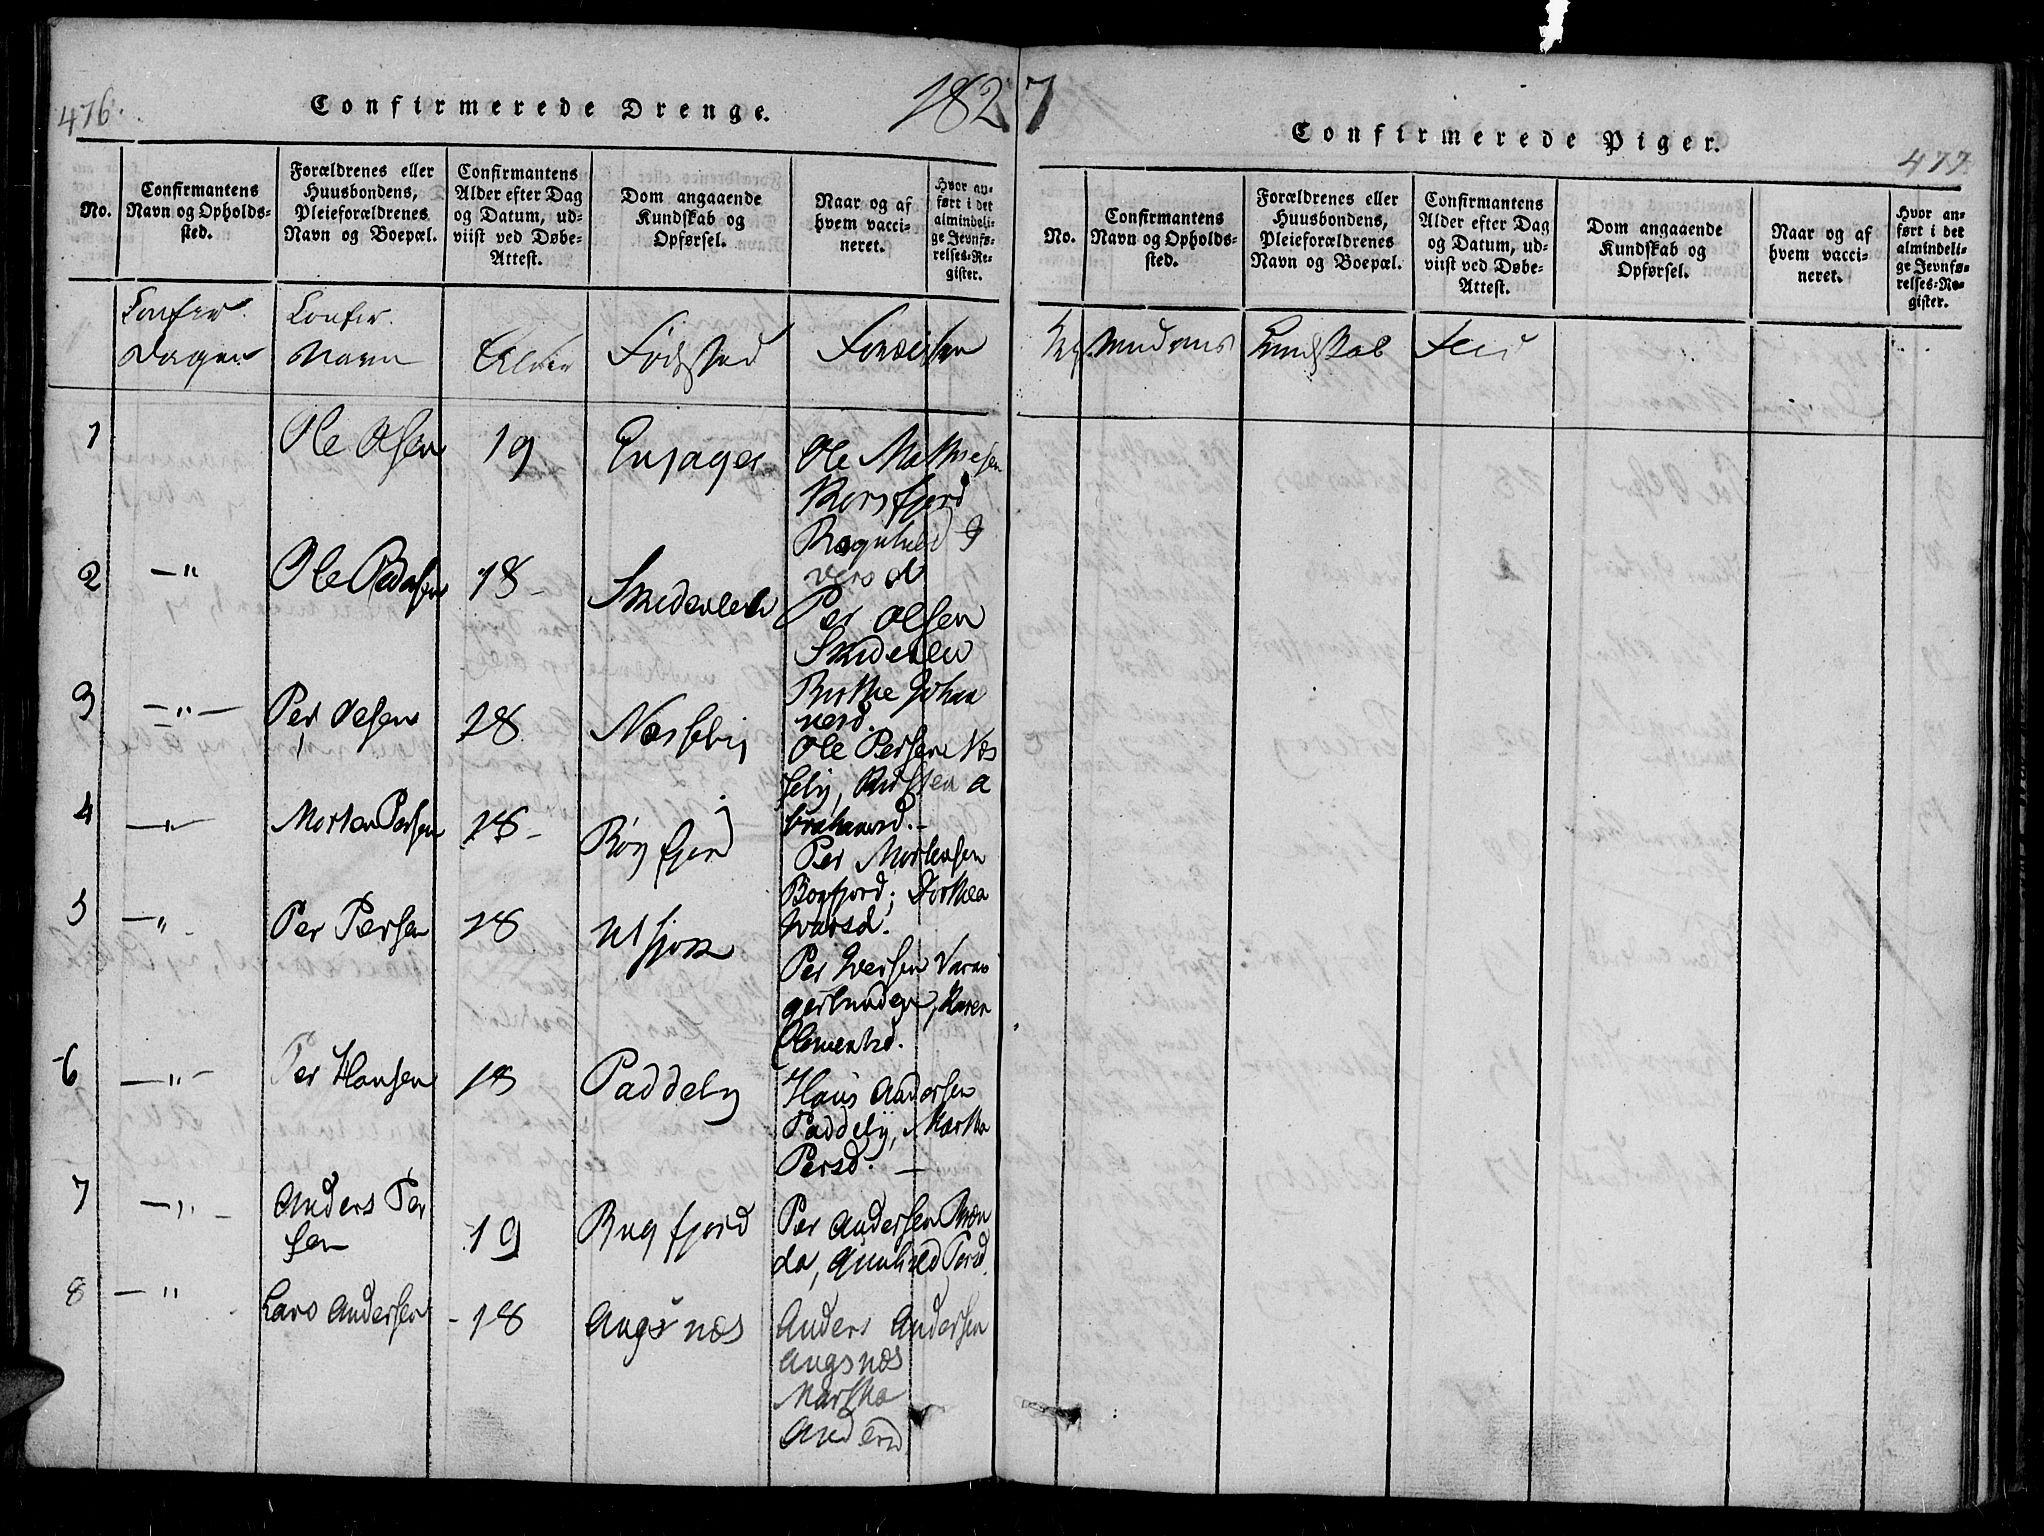 476.
Confirmerede Drenge.
1827
No.
Confirmantens
Navn og Opholds-
sted.
Forældrenes eller
Huusbondens,
Pleieforældrenes
Navn og Boepæl.
Confirmantens
Alder efter Dag
og Datum, ud-
viist ved Døbe-
Attest.
Dom angaaende
Kundskab og
Opførsel.
Naar og af
hvem vacci-
neret.
Hvor an-
ført i det
almindeli-
ge Jevnfø-
relses-Re-
gister.
Confir.
Dagen
Confir.
Navn
Alder
Fødsted
1
Ole Olsen
19
Ole Mathiesen
Korsfjord
Ragnhild I
versd
2
—"
Ole Pedersen
18-
Per Olsen
3
—"—
Per Olsen
18
Næsseby
Birthe Johan
nesd.
Ole Persen Næs
seby, Kirsten A
brahamsd.—
4
—"
Morten Persen
18-
Bøgfjord
Per Mortensen
Bøgfjord; Dorthea
Ivarsd.
5
—"
Per Persen
18
Utsjok
Per Iversen Varan
gerbunden, Karen
Clementsd.
6
—"—
Per Hansen
18
Paddeby
Hans Andersen
Paddeby, Martha
Persd.—
7
—"—
Anders Per
sen
19
Bugfjord
Per Andersen
Persd.
8
—"
Lars Andersen
-18
Angsnæs
Anders Andersen
Angsnæs
Martha
Andersd
Confirmerede Piger.
477
No.
Confirmantens
Navn og Opholds-
sted.
Forældrenes eller
Huusbondens,
Pleieforældrenes
Navn og Boepæl.
Confirmantens
Alder efter Dag
og Datum, ud-
viist ved Døbe-
Attest.
Dom angaaende
Kundskab og
Opførsel.
Naar og af
hvem vacci-
neret.
Hvor an-
ført i det
almindeli-
ge Jevnfø-
relses-Re-
gister.
Kundskab